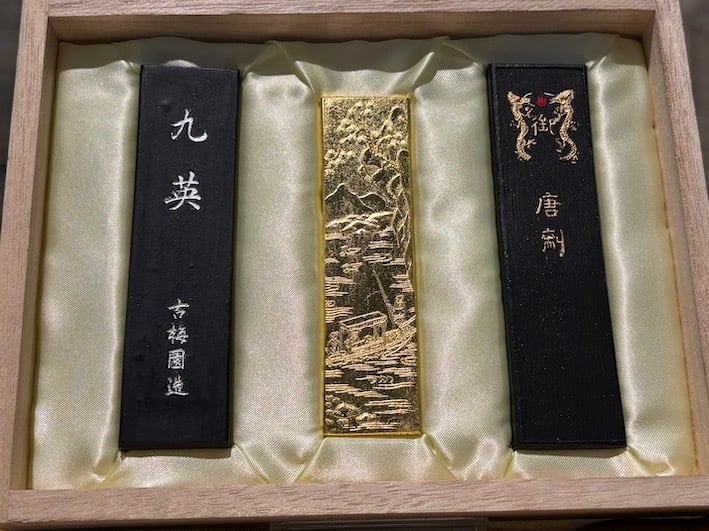 九英
古梅園造
御
唐剤